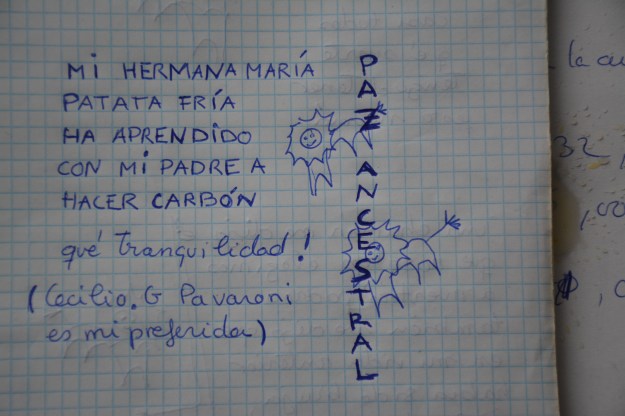 MI HERMANA MARÍA
PATATA FRÍA
HA APRENDIDO
CON MI PADRE A
HACER CARBÓN
qué tranquilidad!
(Cecilio. G Pavaroni
es mi preferida)
PAZ ANCESTRAL
la cu
32,